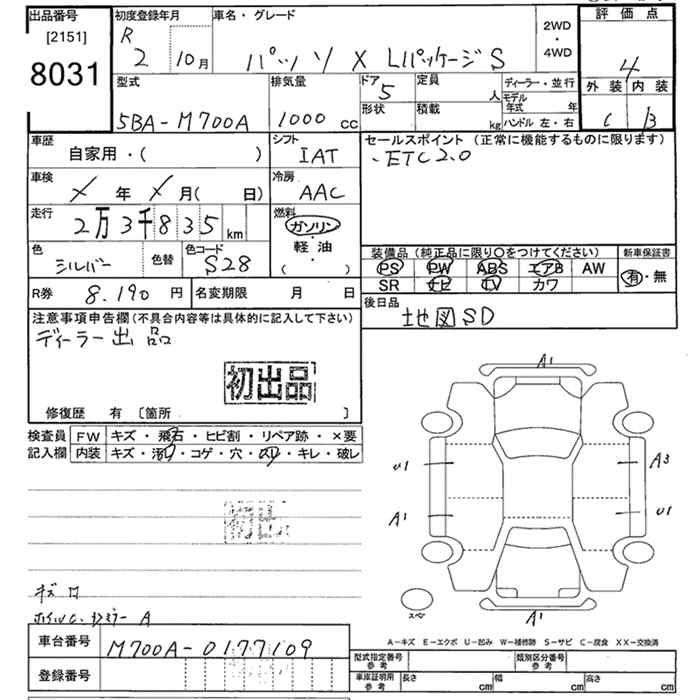 出品番号
[2151]
8031
初度登録年月
R 2 10月
車名・グレード
パッソ X Lパッケージ S
2WD
・
4WD
評価点
4
外装 内装
C B
型式
5BA-M700A
排気量
1000 cc
ドア 5
形状
定員 人
積載 kg
ディーラー・並行
モデル年式 年
ハンドル 左・右
車歴
自家用・( )
シフト
IAT
車検
年 月( 日)
冷房
AAC
走行
2万3千835km
燃料
ガソリン
・
軽油
・
( )
色
シルバー
色替
色コード
S28
セールスポイント (正常に機能するものに限ります)
・ETC2.0
装備品 (純正品に限り○をつけてください)
新車保証書
PS PW ABS エアB AW
SR ナビ TV カワ
有・無
R券 8.190円
名変期限 月 日
後日品
地図SD
注意事項申告欄(不具合内容等は具体的に記入して下さい)
ディーラー出品
初出品
修復歴 有 [箇所 ]
検査員
記入欄
FW キズ・飛石・ヒビ割・リペア跡・×要
内装 キズ・汚れ・コゲ・穴・スレ・キレ・破レ
A1
U1
A3
A1
U1
A1
スペア
A-キズ E-エクボ U-凹み W-補修跡 S-サビ C-腐食 XX-交換済
車台番号
M700A-0177109
登録番号
型式指定番号 参考
類別区分番号 参考
車庫証明用 参考
長さ cm 幅 cm 高さ cm